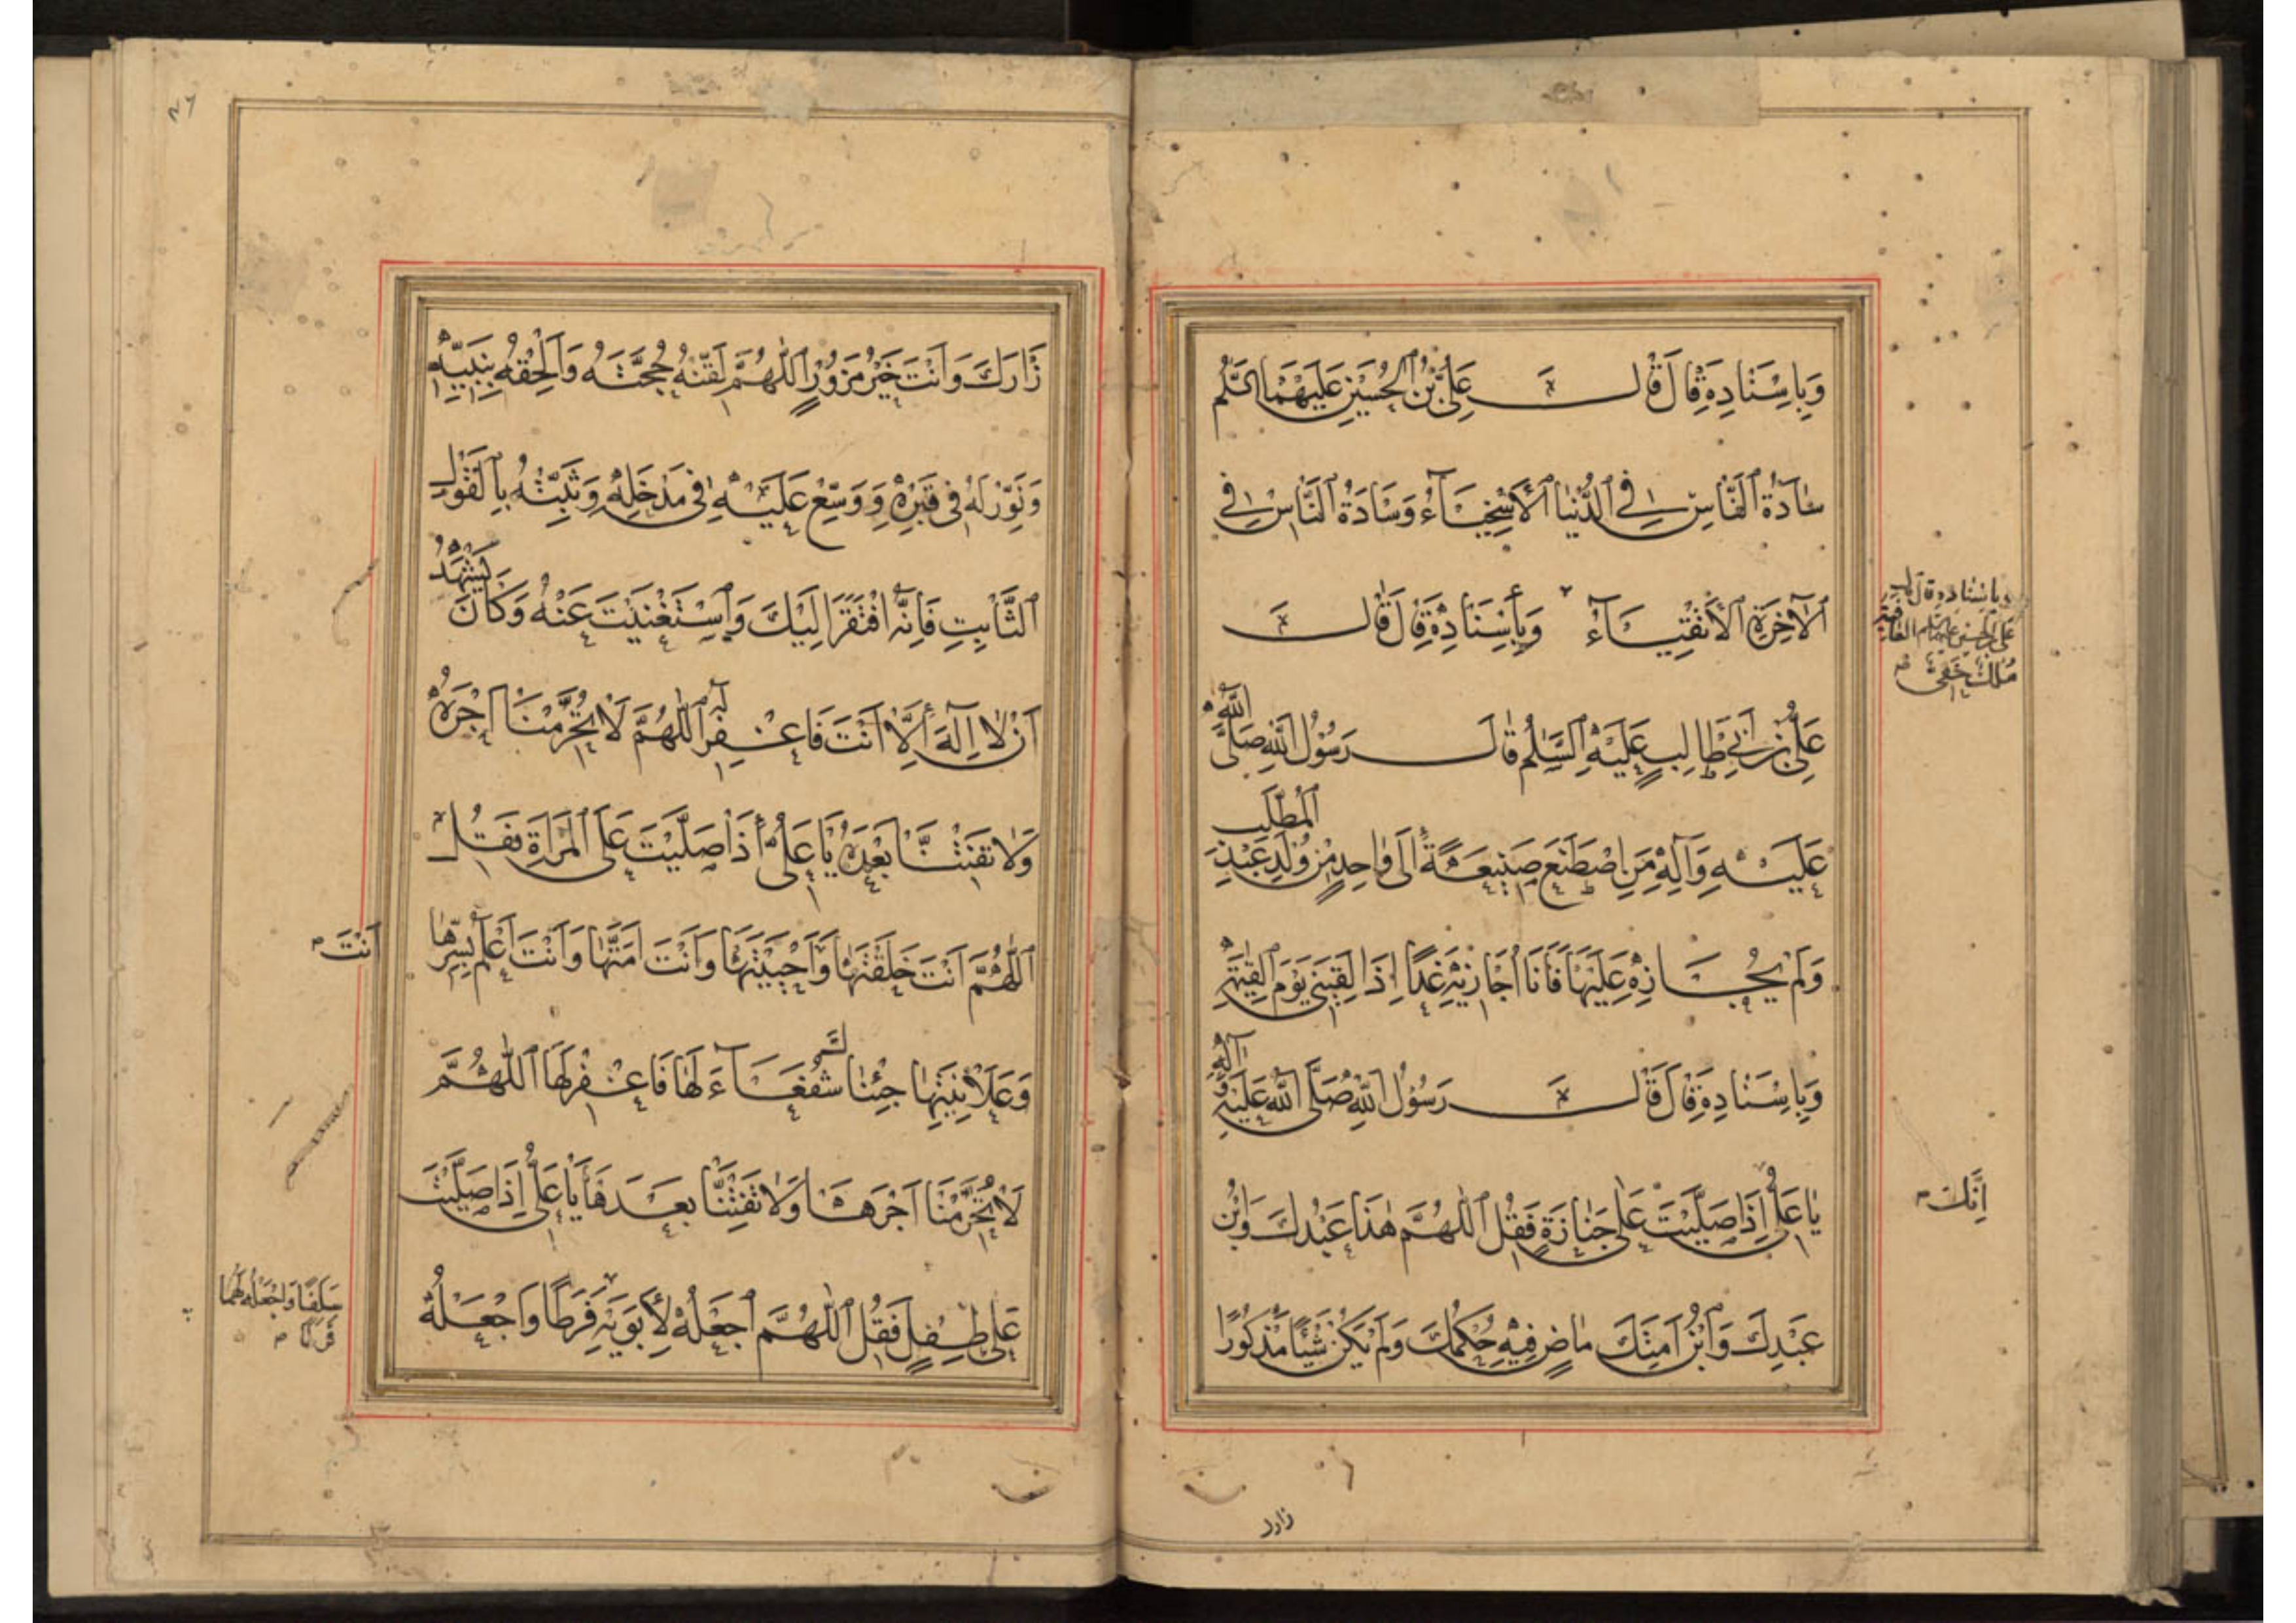 وَبِاِسْنَادِهِ قَالَ قَالَ عَلِيُّ بْنُ الْحُسَيْنِ عَلَيْهِمَا السَّلٰمُ
سَادَةُ النَّاسِ فِي الدُّنْيَا الْأَسْخِيَآءُ وَسَادَةُ النَّاسِ فِي
الْآخِرَةِ الْأَتْقِيَآءُ وَبِأِسْنَادِهِ قَالَ قَالَ
وباسناده قال قال
على بن الحسين عليهما السلم الفائز فقير
مُلكٌ خفى
عَلِيُّ بْنُ اَبِي طَالِبٍ عَلَيْهِ السَّلٰمُ قَالَ رَسُوْلُ اللهِ صَلَّى اللّٰهُ
عَلَيْهِ وَآلِهِ مَنِ اصْطَنَعَ صَنِيْعَةً اِلَى وَاحِدٍ مِنْ وُلْدِ عَبْدِ الْمُطَّلِبِ
وَلَمْ يُجَازِهِ عَلَيْهَا فَاَنَا اُجَازِيْهِ غَدًا اِذَا لَقِيَنِي يَوْمَ الْقِيٰمَةِ
وَبِاِسْنَادِهِ قَالَ قَالَ رَسُوْلُ اللهِ صَلَّى اللهُ عَلَيْهِ وَآلِهِ
يَا عَلِيُّ اِذَا صَلَّيْتَ عَلٰى جَنَازَةٍ فَقُلْ اَللّٰهُمَّ هٰذَا عَبْدُكَ وَابْنُ
اِنَّكَ
عَبْدِكَ وَابْنُ اَمَتِكَ مَاضٍ فِيْهِ حُكْمُكَ وَلَمْ يَكُنْ شَيْئًا مَذْكُوْرًا
زارك
زَارَكَ وَاَنْتَ خَيْرُ مَزُوْرٍ اَللّٰهُمَّ لَقِّنْهُ حُجَّتَهُ وَاَلْحِقْهُ بِنَبِيِّهِ
وَنَوِّرْ لَهُ فِي قَبْرِهِ وَوَسِّعْ عَلَيْهِ فِي مَدْخَلِهِ وَثَبِّتْهُ بِالْقَوْلِ
الثَّابِتِ فَاِنَّهُ افْتَقَرَ اِلَيْكَ وَاسْتَغْنَيْتَ عَنْهُ وَكَانَ يَشْهَدُ
اَنْ لَا اِلٰهَ اِلَّا اَنْتَ فَاغْفِرْ لَهُ اَللّٰهُمَّ لَا تُحَرِّمْنَا اَجْرَهُ
وَلَا تَفْتِنَّا بَعْدَهُ يَا عَلِيُّ اِذَا صَلَّيْتَ عَلَى الْمَرْاَةِ فَقُلْ
اَللّٰهُمَّ اَنْتَ خَلَقْتَهَا وَاَحْيَيْتَهَا وَاَنْتَ اَمَتَّهَا وَاَنْتَ اَعْلَمُ بِسِرِّهَا
اَنْتَ
وَعَلَانِيَتِهَا جِئْنَاكَ شُفَعَآءَ لَهَا فَاغْفِرْ لَهَا اَللّٰهُمَّ
لَا تُحَرِّمْنَا اَجْرَهَا وَلَا تَفْتِنَّا بَعْدَهَا يَا عَلِيُّ اِذَا صَلَّيْتَ
عَلٰى طِفْلٍ فَقُلْ اَللّٰهُمَّ اجْعَلْهُ لِأَبَوَيْهِ فَرَطًا وَاجْعَلْهُ
سَلَفًا وَاجْعَلْهُ لَهُمَا